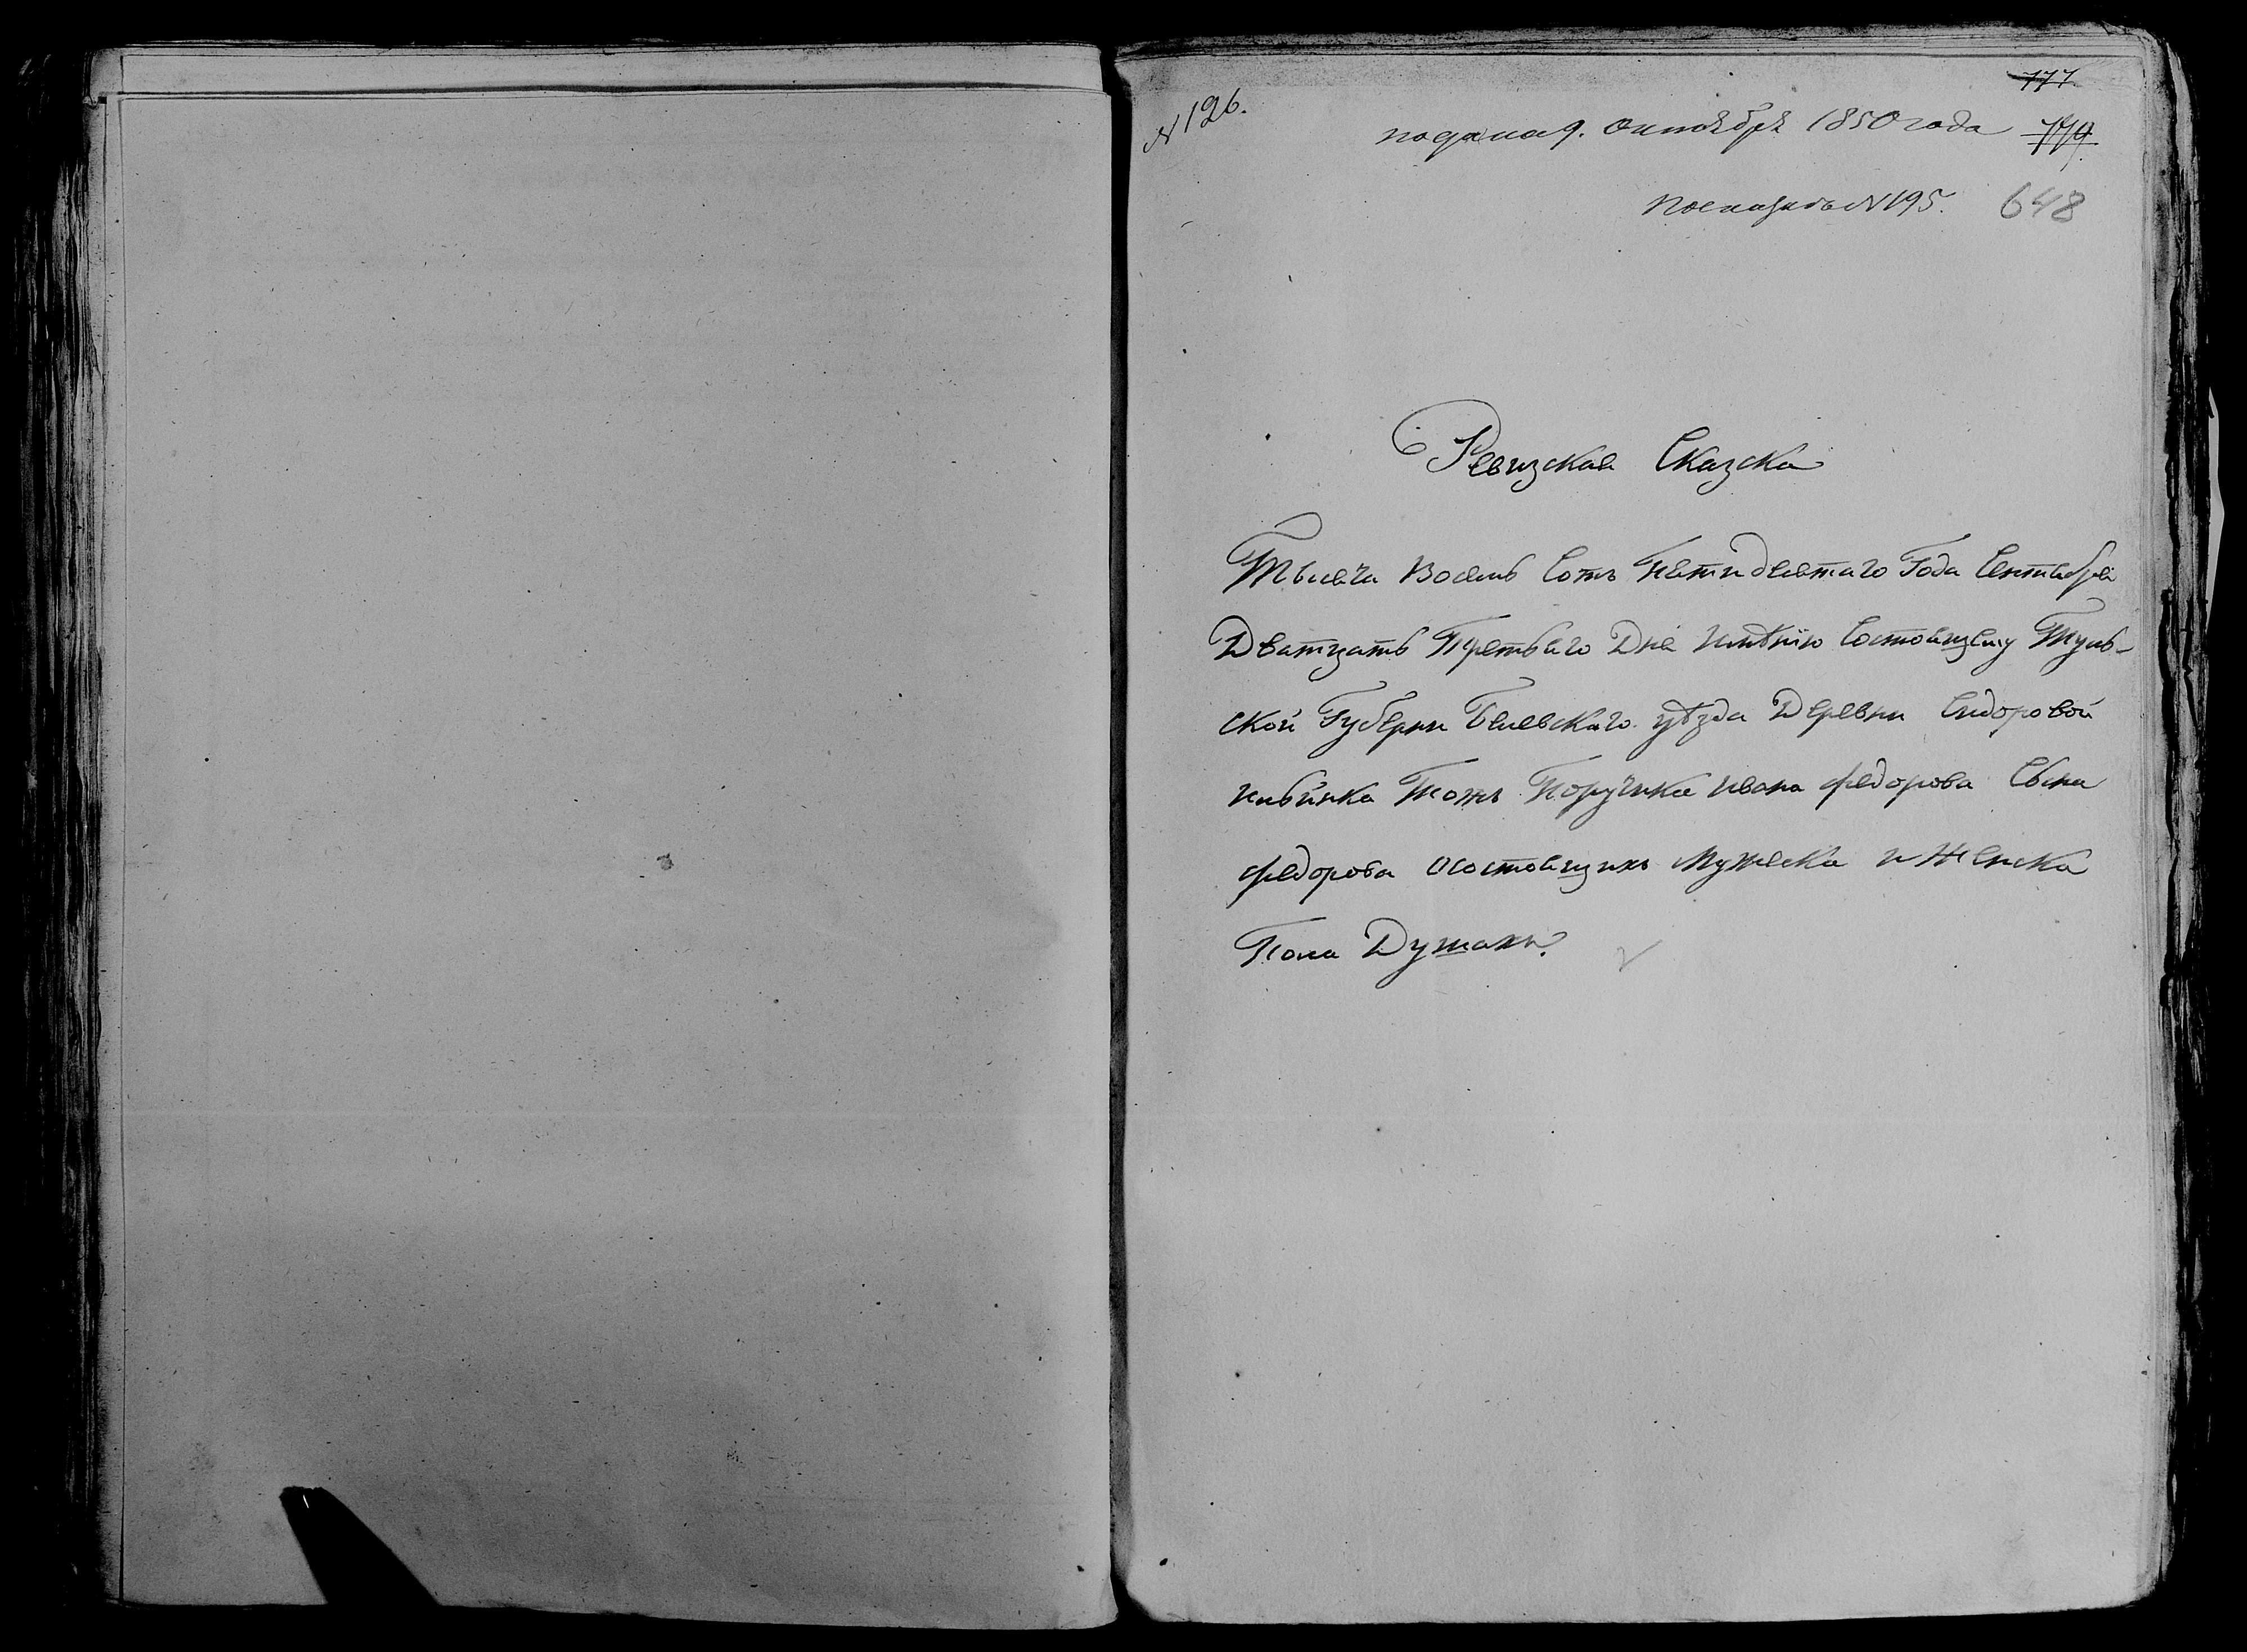 777.
N 126.
подана 9. октября 1850 года 779
648
Ревизская Сказка
Тысеча Восемь Сотъ Петидесятаго Года Сентебря
Дватцать Третьего Дня имѣнію Состоящему Туль-
ской Губерни Белевскаго уѣзда Деревни Сидоровой
Тожъ Поручика ивана федорова Сына
федорова осостоящихъ Мужеска и Женска
Пола Душахъ.